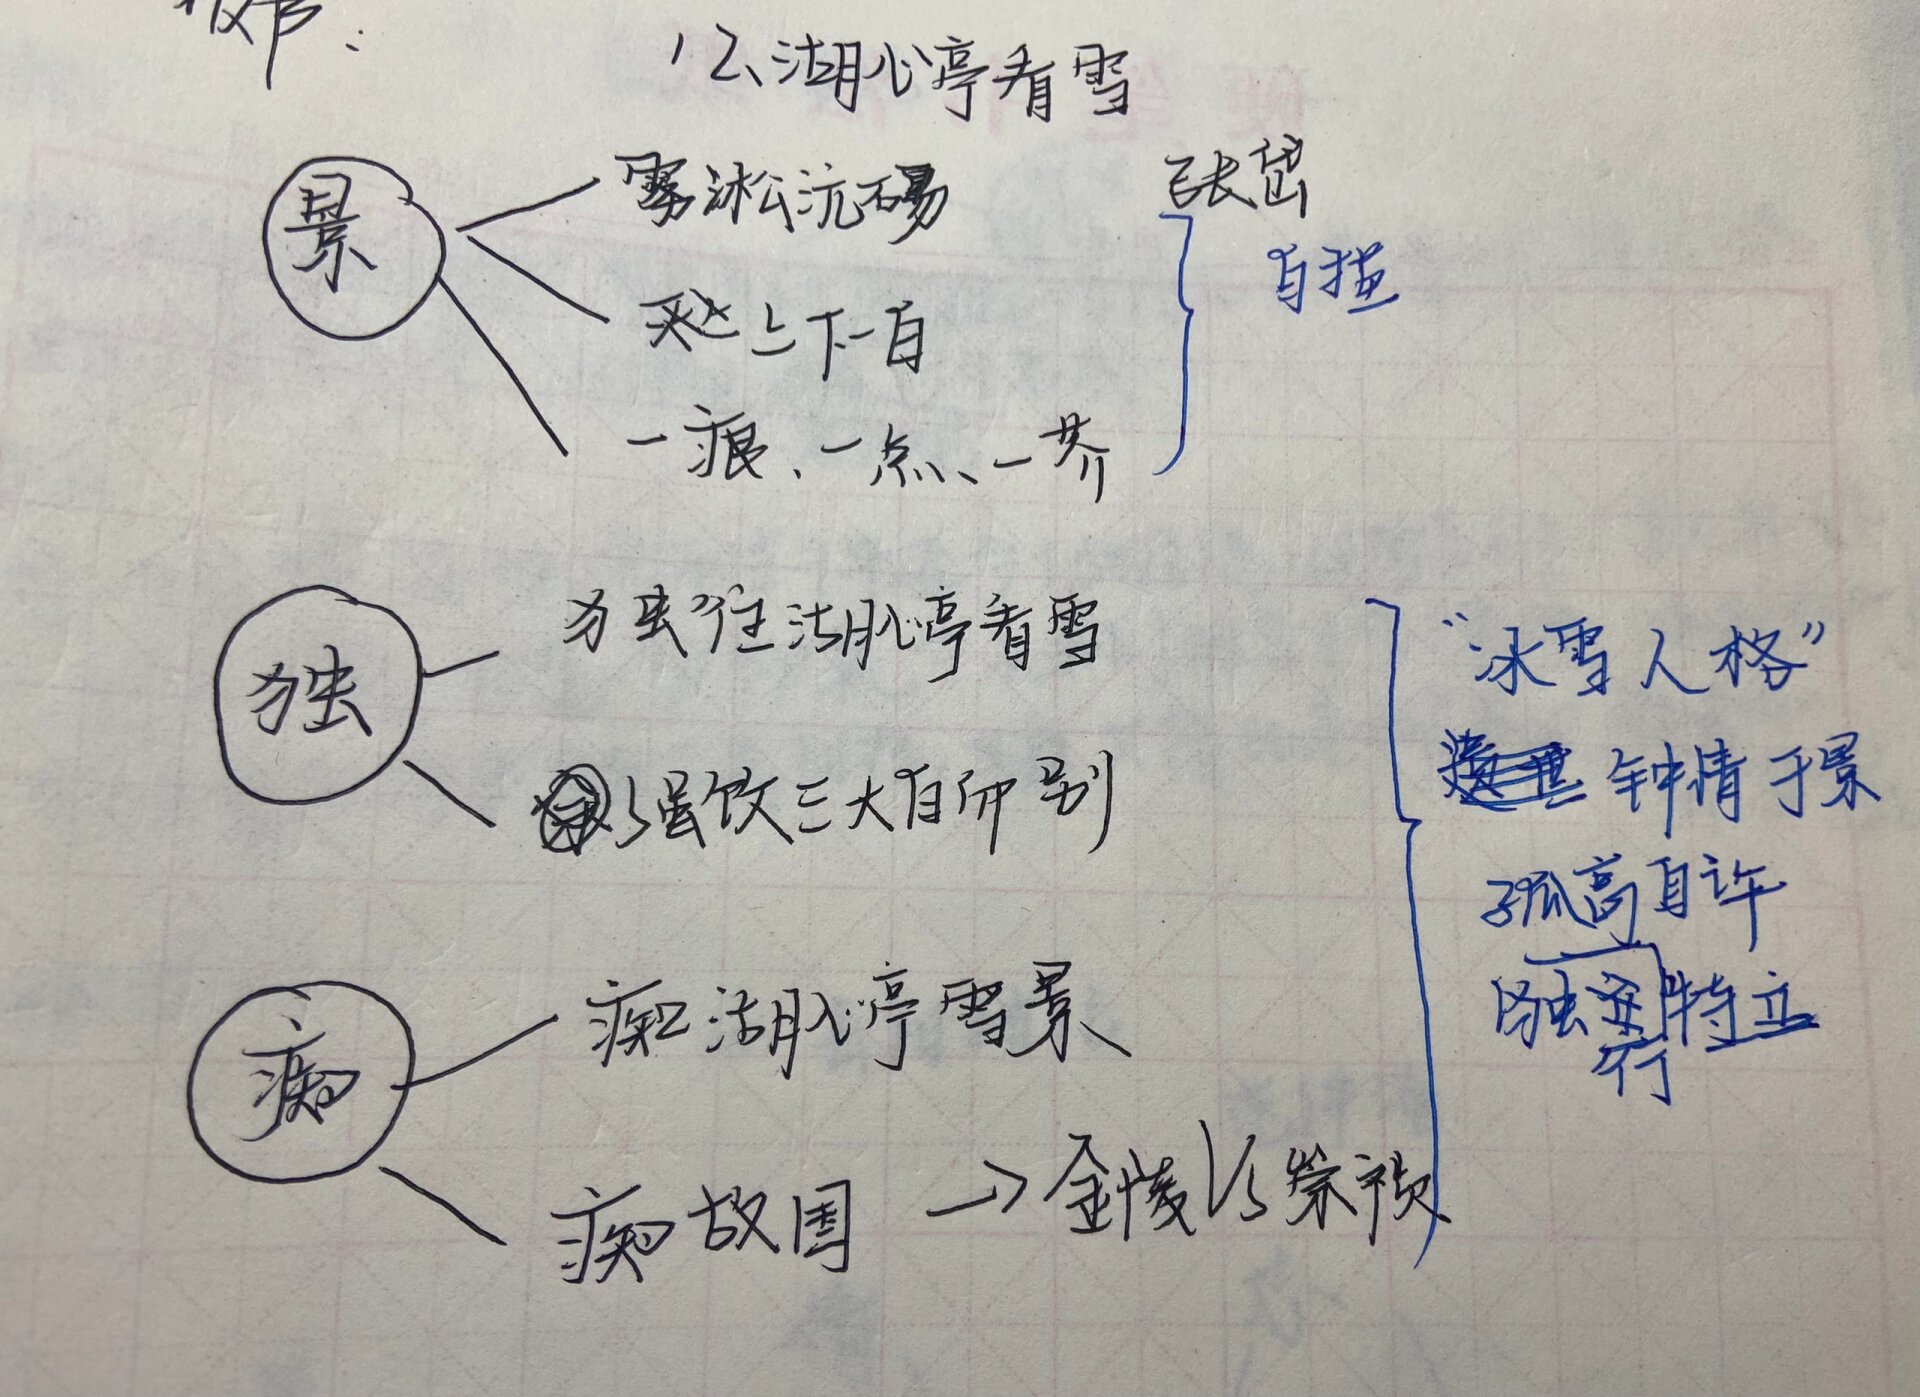 12、湖心亭看雪
张岱
景
雾淞沆砀
天与上下一白
一痕、一点、一芥
白描
独
独往湖心亭看雪
强饮三大白而别
痴
痴湖心亭雪景
痴故国 → 金陵 VS 崇祯
“冰雪人格”
钟情于景
孤高自许
特立
独行